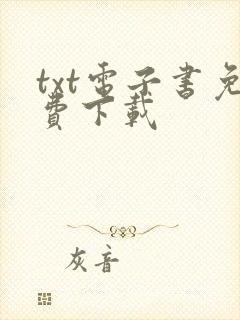 txt電子書免
費下載
灰音